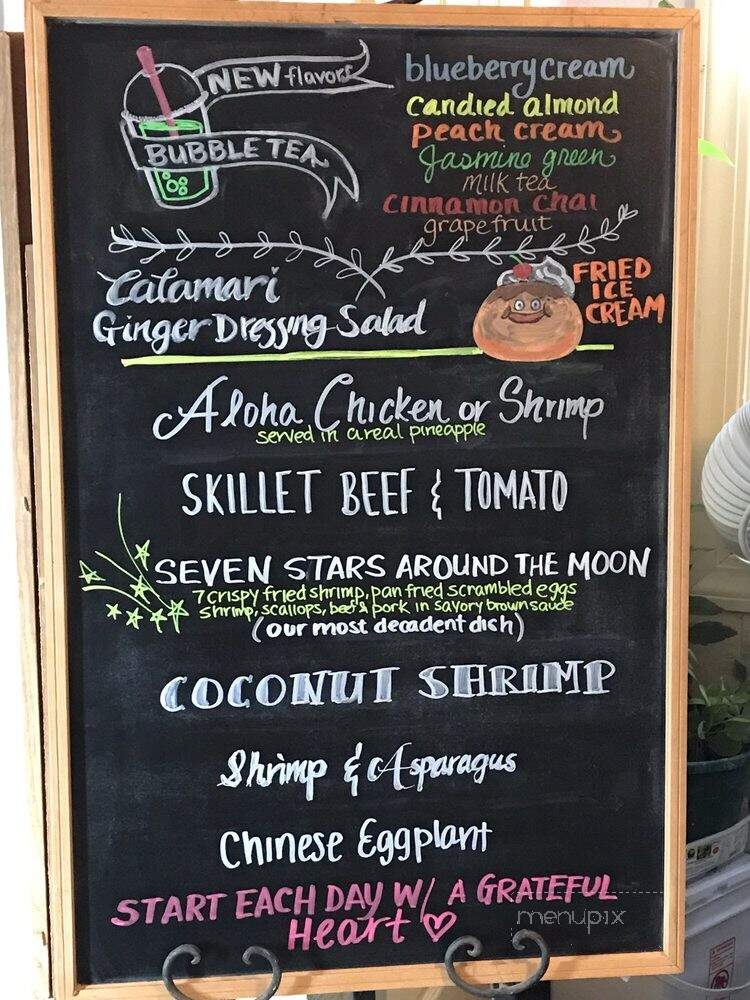 NEW flavors
BUBBLE TEA
blueberry cream
candied almond
peach cream
Jasmine green
milk tea
cinnamon chai
grapefruit
Calamari
Ginger Dressing Salad
FRIED
ICE
CREAM
Aloha Chicken or Shrimp
served in a real pineapple
SKILLET BEEF & TOMATO
SEVEN STARS AROUND THE MOON
7 crispy fried shrimp, pan fried scrambled eggs
shrimp, scallops, beef & pork in savory brown sauce
(our most decadent dish)
COCONUT SHRIMP
Shrimp & Asparagus
Chinese Eggplant
START EACH DAY W/ A GRATEFUL
Heart
menupix